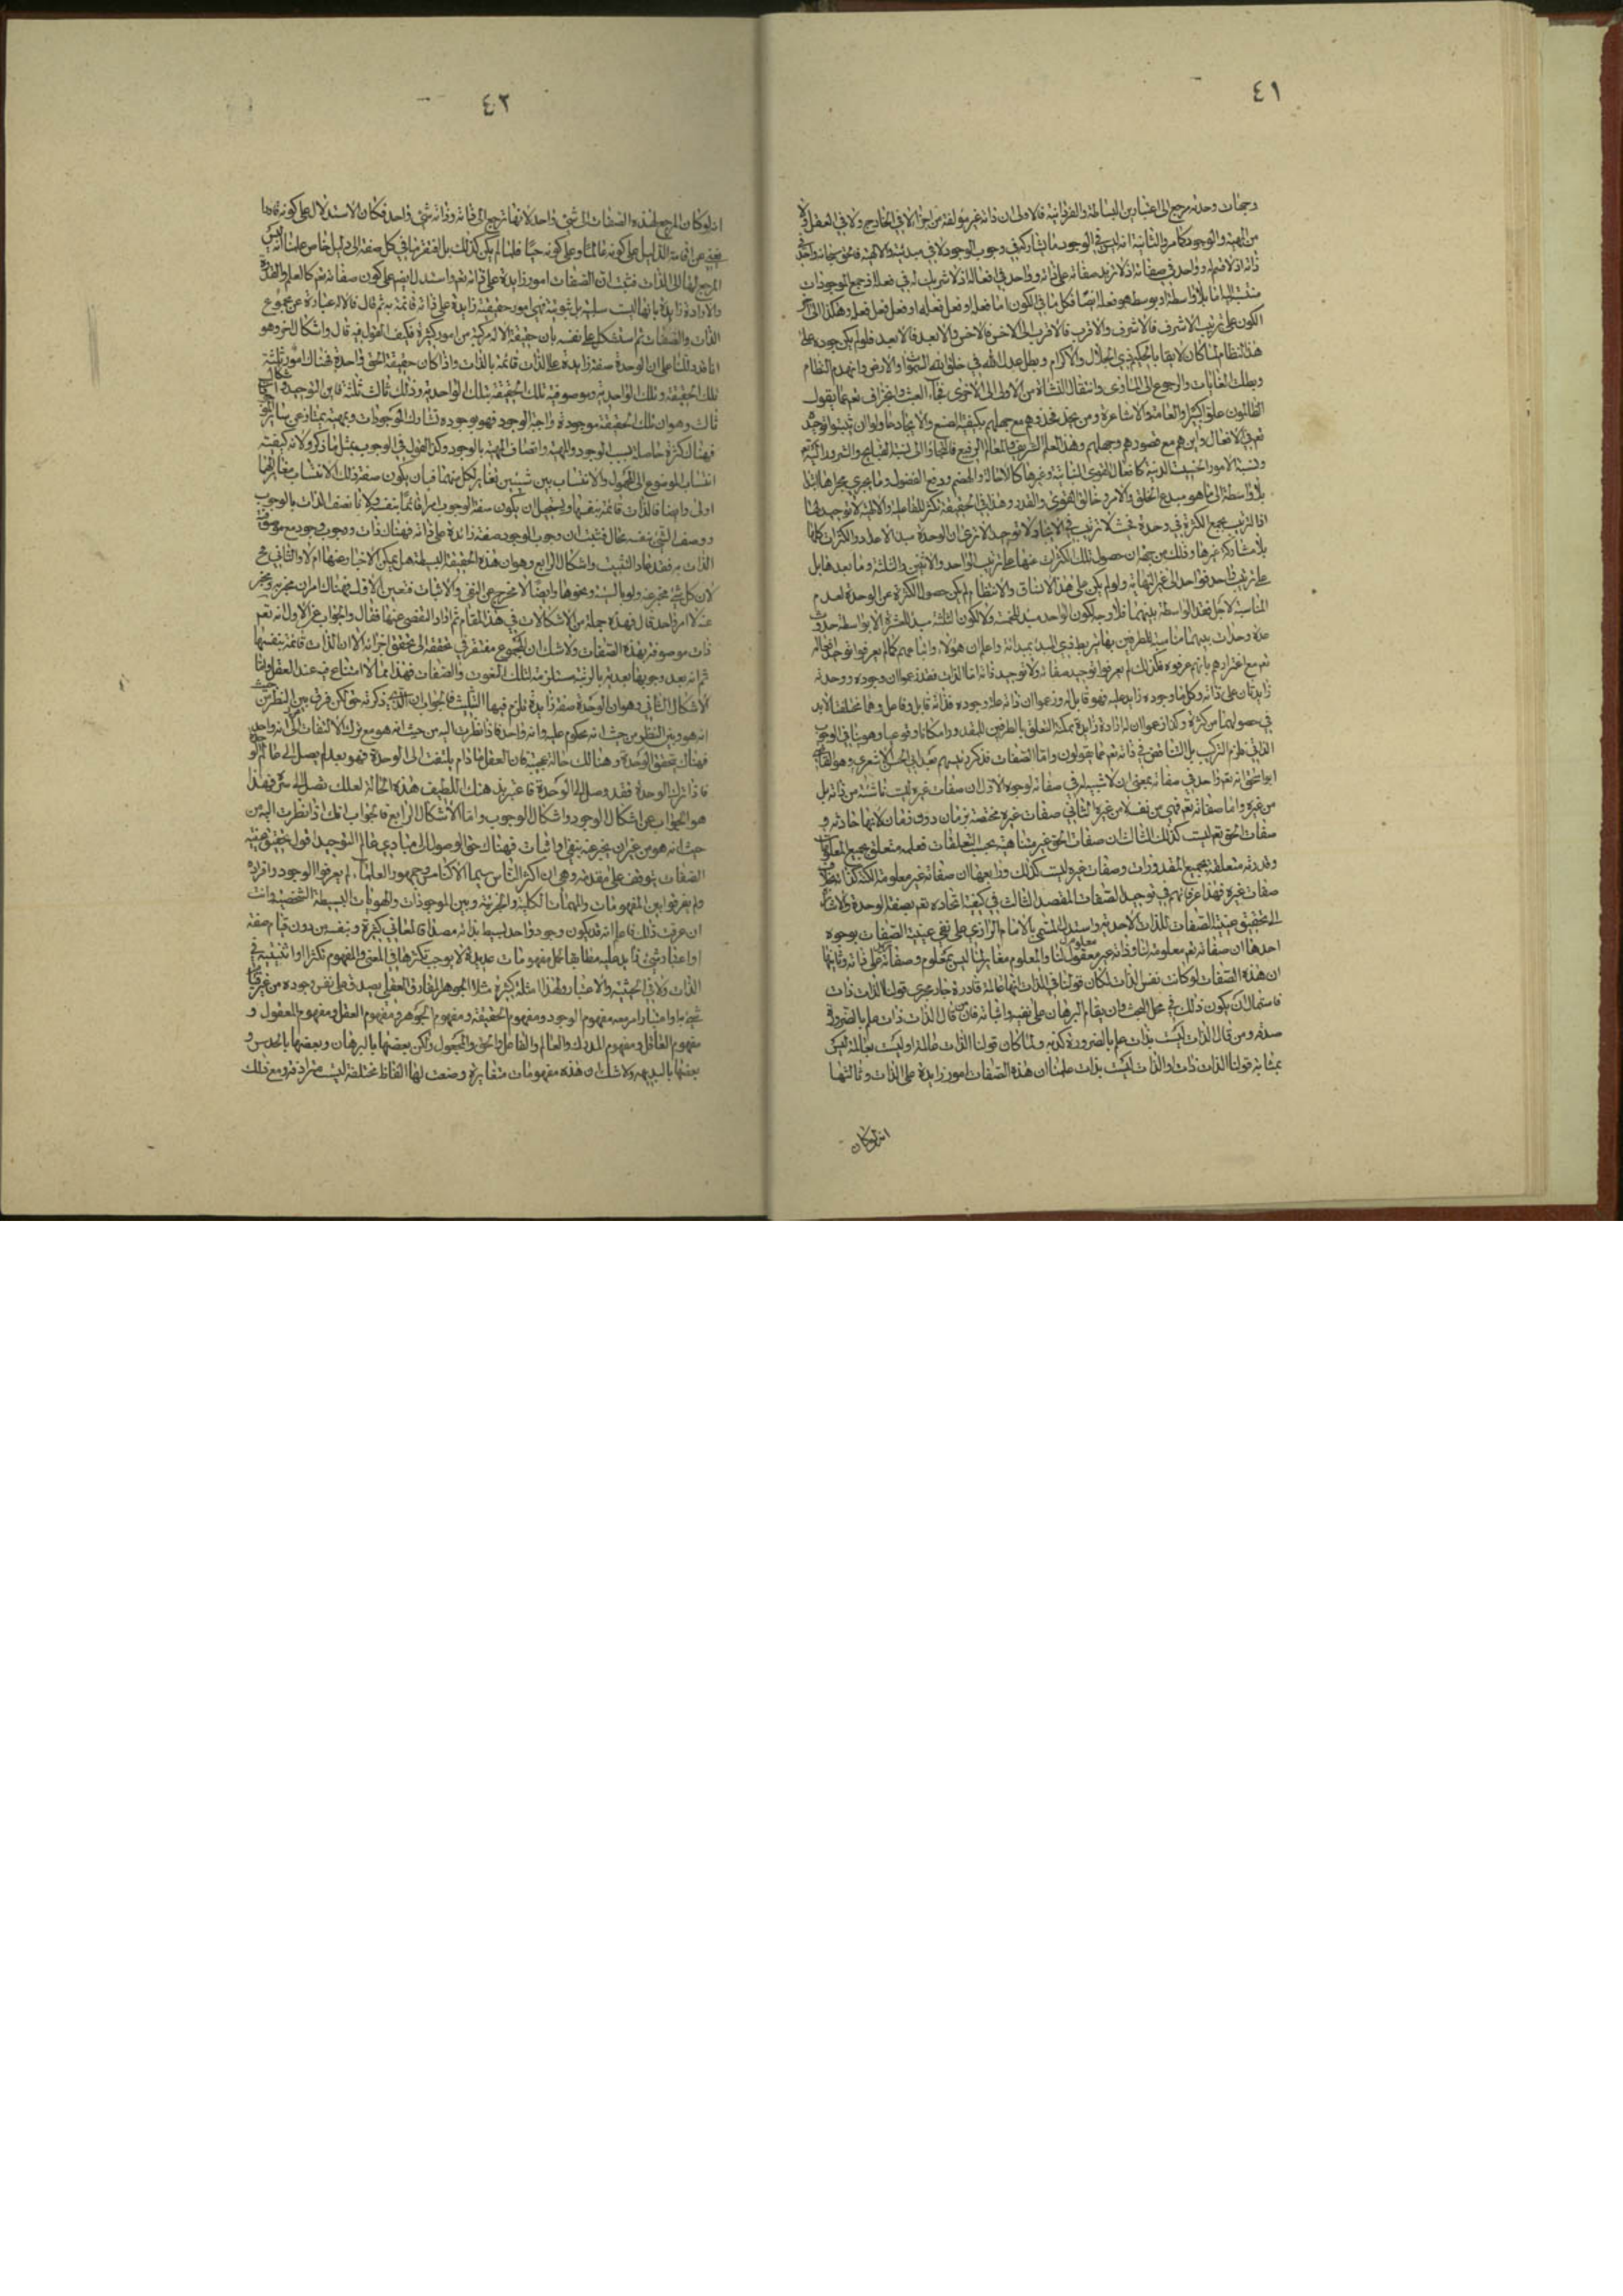 ٤١
وجهات وحدته يرجع الى اعتبارين البساطة والفردانية فالاولى ان ذاته غير مؤلفة من اجزاء لا في الخارج ولا في العقل
من المهية والوجود كما مر والثانية انه ليس في الوجود ما يشاركه في وجوب الوجود ولا في مبدئيته والالهية فالحق سبحانه واحد في
ذاته اذ لا قسيم له وواحد في صفاته اذ لا تزيد صفاته على ذاته وواحد في افعاله اذ لا شريك له في فعله اذ جميع الموجودات
منتسب اليه اما بلا واسطة او بوسط هو فعله ايضا فكل ما في الكون اما فعله او فعل فعله او فعل فعل فعله وهكذا الى آخر
الكون على ترتيب الاشرف فالاشرف والاقرب فالاقرب الى الاخس فالاخس والابعد فالابعد فلو لم يكن جوده على
هذا النظام لما كان لايقا بالحكيم ذي الجلال والاكرام وبطل عدل الله في خلق السموات والارض وانهدم النظام
وبطلت الغايات والرجوع الى المبادى وانتقال النشاة من الاولى الى الاخرى فجاء العبث والجزاف تعالى عما يقول
الظالمون علوا كبيرا والعامة والاشاعرة ومن يحذو حذوهم مع جهلهم بكيفية الصنع والايجاد حاولوا ان يثبتوا توحيده
تعالى في الافعال واين هم مع قصورهم وجهلهم وهذا العلم الشريف والمعلم الرفيع
ونسبة الامور الخسيسة الدنية كافعال القوى النباتية وغيرها كالاحالة والهضم ودفع الفضول وما يجري مجراها ابتداء
بلا واسطة الى ما هو مبدع الخلق والامر وخالق القوى والقدر وهذا في الحقيقة تكثر للفاعلية والالهية لا توحيد لها
اذ الترتيب يجمع الكثرة في وحدة فحيث لا ترتيب في الايجاد لا توحيد الا ترى ان الوحدة مبدا الاعداد والكثرات كلها
بلا مشاركة غيرها وذلك من جهة ان حصول تلك الكثرات منها على ترتيب الواحد والاثنين والثلثة وما بعدها بل
على ترتيب واحد فواحد الى غير النهاية ولو لم يكن على هذا الاتساق والانتظام لم يكن حصول الكثرة عن الوحدة لعدم
المناسبة لاجل فقد الواسطة بينهما فلا وجه لكون الواحد مبدا للخمسة ولا لكون الثلثة مبدا للعشرة الا بواسطة حدوث
عدة وحدات بينهما مناسبة للطرفين بها يرتبط ذي المبدا بمبدائه واعلم ان هؤلاء واتباعهم كما لم يعرفوا توحيد افعاله
تعالى مع اغترارهم بانهم عرفوه فكذلك لم يعرفوا توحيد صفاته ولا توحيد ذاته اما الذات فقد زعموا ان وجوده ووحدته
زايدتان على ذاته وكل ما وجوده زايد عليه فهو قابل له وزعموا ان ذاته علة وجوده فذاته قابل وفاعل وهما مختلفتا لابد
في حصولهما من كثرة وكذا زعموا ان له ارادة زايدة ممكنة التعلق بالطرفين للمقدور امكانا وقوعيا وهو ينافي الوجوب
الذاتي فلزم التركيب بل التناقض في ذاته تعالى عما يقولون واما الصفات فذكر رئيسهم بعد ابي الحسن الاشعري وهو القاضي
ابو اسحق انه تعالى واحد في صفاته بمعنى ان لا شبيه له في صفاته لوجوه الاول ان صفات غيره ليست ناشئة من ذاته بل
من غيره واما صفاته تعالى فهي من نفسه لا من غيره الثاني صفات غيره مختصة بزمان دون زمان لانها حادثة و
صفات الحق تعالى ليست كذلك الثالث ان صفات الحق غير متناهية بحسب التعلقات فعلمه متعلق بجميع المعلومات
وقدرته متعلقة بجميع المقدورات وصفات غيره ليست كذلك ورابعها ان صفاته غير معلومة الكنه
صفات غيره فهذا عرفانهم في توحيد الصفات المقصد الثالث في كيفية اتحاده تعالى بصفة الوحدة والاشارة
الى تحقيق عينية الصفات للذات الاحدية واستدل المسمى بالامام الرازي على نفي عينية الصفات بوجوه
احدها ان صفاته تعالى معلومة لنا وذاته غير معلوم لنا والمعلوم مغاير لما ليس بمعلوم فصفاته زايدة على ذاته وثانيها
ان هذه الصفات لو كانت نفس الذات لكان قولنا في الذات انها عالمة قادرة جار مجرى قولنا الذات ذات
فاستحال ان يكون ذلك في محل البحث وان يقام البرهان على نفيه واثباته فان من قال الذات ذات علم بالضرورة
صدقه ومن قال الذات ليست بذات علم بالضرورة كذبه ولما كان قولنا الذات عالمة او ليست بعالمة ليس
بمثابة قولنا الذات ذات او الذات ليست بذات علمنا ان هذه الصفات امور زايدة على الذات وثالثها
انه لو كان
٤٢
انه لو كان المرجع لهذه الصفات الى شئ واحد لانها ترجع الى ذاته وذاته شئ واحد فكان الاستدلال على كونه قادرا
يغني عن اقامة الدليل على كونه عالما وعلى كونه حيا فلما لم يكن كذلك بل افتقرنا في كل صفة الى دليل خاص علمنا انه ليس
المرجع لها الى الذات فثبت ان الصفات امور زايدة على ذاته تعالى واستدل ايضا على كون صفاته تعالى كالعلم والقدرة
والارادة زايدة بانها ليست سلبية بل ثبوتية فهي امور حقيقية زايدة على ذاته قائمة به ثم قال فالاله عبارة عن مجموع
الذات والصفات ثم استشكل على نفسه بان حقيقة الاله مركبة من امور كثيرة فكيف القول فيه قال واشكال اخر وهو
انا قد دللنا على ان الوحدة صفة زايدة على الذات قائمة بالذات واذا كان حقيقة الحق واحدة فهناك امور ثلثة
تلك الحقيقة وتلك الواحدية وموصوفية تلك الحقيقة بتلك الواحدية وذلك ثالث ثلثة فاين التوحيد واشكال
ثالث وهو ان تلك الحقيقة موجودة وواجبة الوجود فهو بوجوده تشارك الموجودات وبمهيته يمتاز عن سائر
فهناك كثرة حاصلة بسبب الوجود والمهية واتصاف المهية بالوجود وكذا القول في الوجوب بمثل ما ذكر ولانه كيفية
انتساب الموضوع الى المحمول والانتساب بين شيئين تغاير لكل منهما فبان يكون صفة ذلك الانتساب مغايرة لهما
اولى وايضا فالذات قائمة بنفسها ويستحيل ان يكون صفة الوجوب امرا قائما بنفسه ولانا نصف الذات بالوجوب
ووصف الشئ بنفسه محال فثبت ان وجوب الوجود صفة زائدة على ذاته فهناك ذات ووجوب ووجود مع موصوفية
الذات به فقد عاد التثليث واشكال الرابع وهو ان هذه الحقيقة البسيطة هل يمكن الاخبار عنها ام لا والثاني مح
لان كل شئ مخبر عنه ولو بالشيئية ونحوها وايضا لا تخرج عن النفي والاثبات فتعين الاول فهناك امران مخبر به ومخبر
عنه لا امر واحد قال فهذه جملة من الاشكالات في هذا المقام ثم اراد التفصي عنها فقال والجواب عن الاول انه تعالى
ذات موصوفة بهذه الصفات ولا شك ان المجموع مفتقر في تحققه الى تحقق اجزائه الا ان الذات قائمة بنفسها
ثم انه بعد وجوبها بعدية بالرتبة مستلزمة لتلك النعوت والصفات فهذا مما لا امتناع فيه عند العقل واما
الاشكال الثاني وهو ان الوحدة صفة زايدة فلزم فيها التثليث فالجواب ان الذي ذكرته حق لكن فرق بين النظر من حيث
انه هو وبين النظر من حيث انه محكوم عليه وانه واحد فاذا نظرت اليه من حيث انه هو مع ترك الالتفات الى انه واحد
فهناك تتحقق الوحدة وهنالك حالة عجيبة فان العقل ما دام يلتفت الى الوحدة فهو بعد لم يصل الى عالم الوحدة
فاذا ترك الوحدة فقد وصل الى الوحدة فاعتبر بذهنك اللطيف هذه الحالة لعلك تصل الى سره فهذا
هو الجواب عن اشكال الوجود واشكال الوجوب واما الاشكال الرابع فالجواب انك اذا نظرت اليه من
حيث انه هو من غير ان يخبر عنه بنفي او اثبات فهناك حق الوصول الى مبادي عالم التوحيد اقول تحقيق عينية
الصفات يتوقف على مقدمة وهي ان اكثر الناس سيما الاكياس وجمهور العلماء لم يعرفوا الوجود وافراده
ولم يفرقوا بين المفهومات والمهيات الكلية والجزئية وبين الموجودات والهويات البسيطة الشخصية وانت
ان عرفت ذلك فاعلم انه قد يكون وجود واحد بسيط بذاته مصداقا لمعاني كثيرة وبنفسه من دون قيام صفة
او اعتبار شئ زايد عليه مطابقا لحمل مفهومات عديدة لا يوجب تكثرها في المعنى والمفهوم تكثرا او اثنينية في
الذات ولا في الحيثية والاعتبار ولهذا امثلة كثيرة مثلا الجوهر المفارق العقلي يصدق على نفس وجوده من غير
شئ ما واعتبار امر معه مفهوم الوجود ومفهوم الحقيقة ومفهوم الجوهر ومفهوم العقل ومفهوم المعقول و
مفهوم العاقل ومفهوم المدرك والعالم والفاعل والحق والمجعول ولكن بعضها بالبرهان وبعضها بالحدس و
بعضها بالبديهه ولا شك ان هذه مفهومات متغايرة وضعت لها الفاظ مختلفة ليست مترادفة ومع ذلك